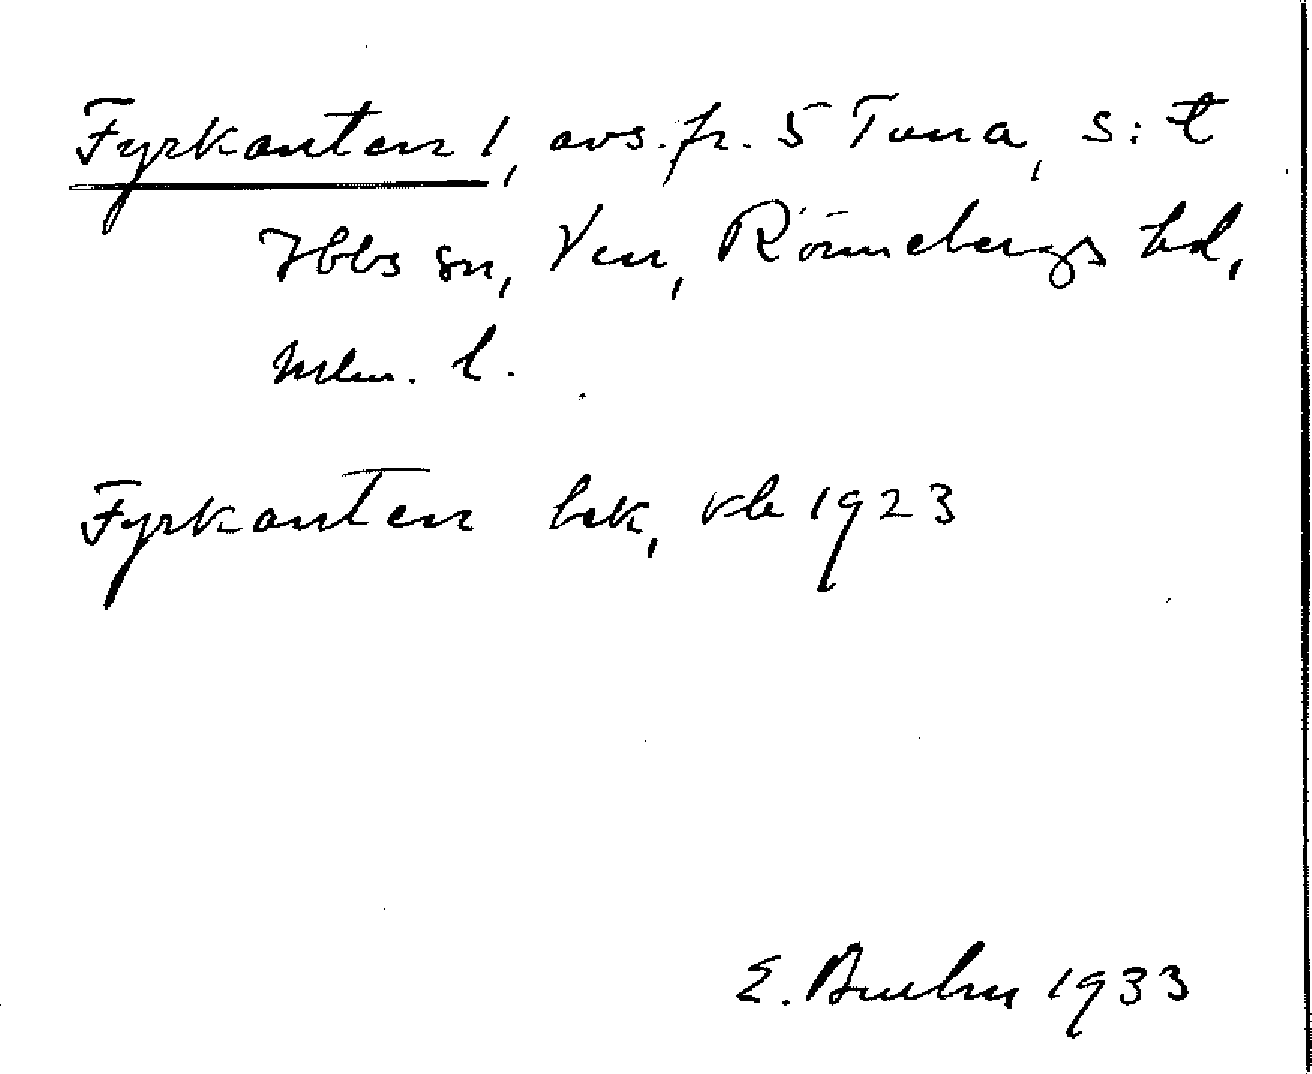 Fyrkanten 1, avs. fr. 5 Tuna, S:t
Ibbs sn, Ven, Rönnebergs hd,
Mlm. l.
Fyrkanten bek, vb 1923
E. 1933